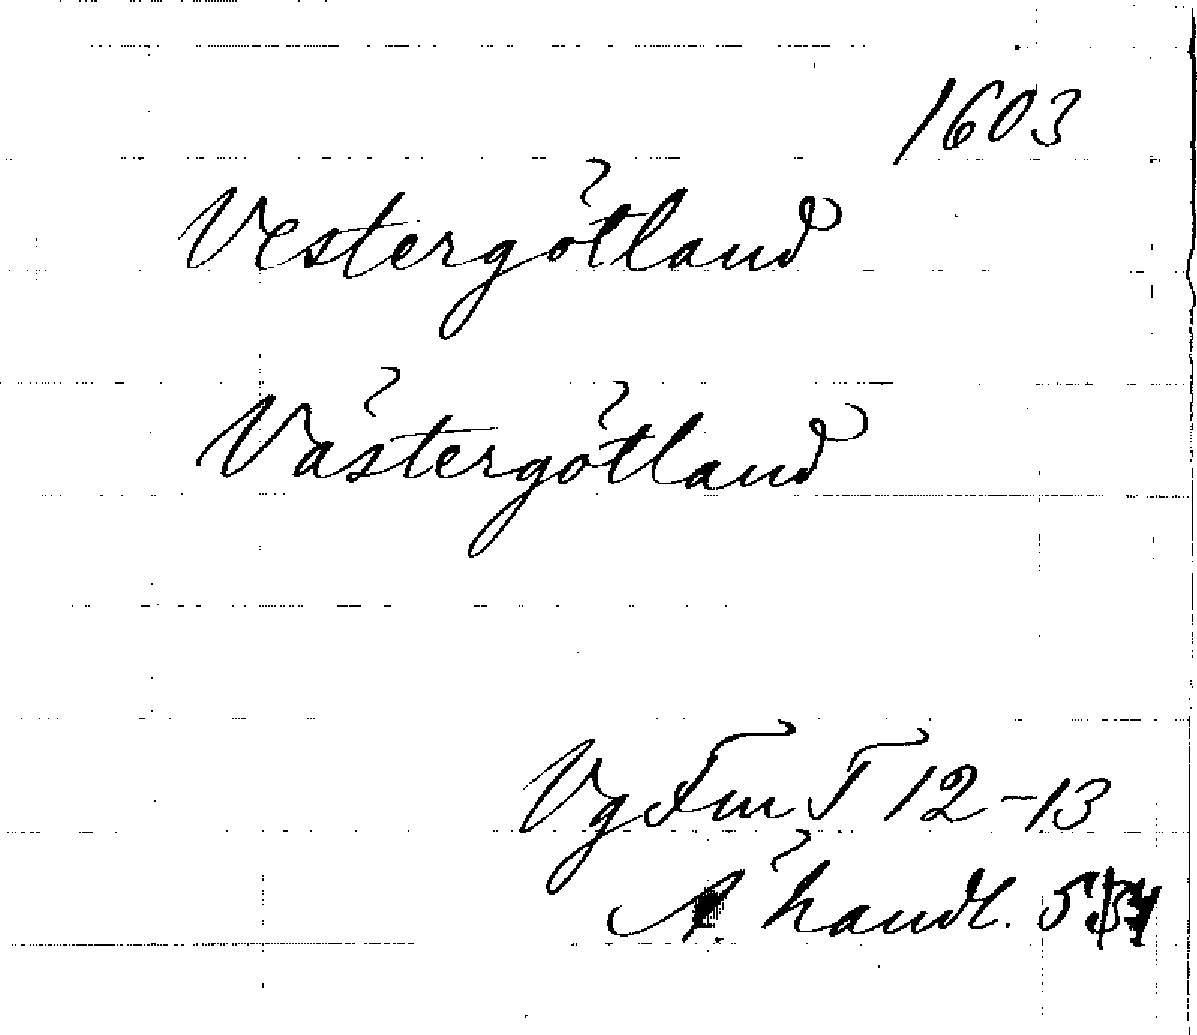 1603
Vestergötland
Västergötland
VgFmT 12-13
handl.